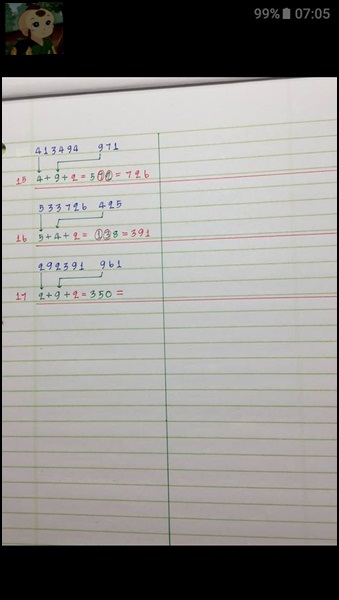 99% 07:05
413494 971
15 4+9+2=572=726
533726 425
16 5+4+2= 138=391
292391 961
17 2+9+2=350=